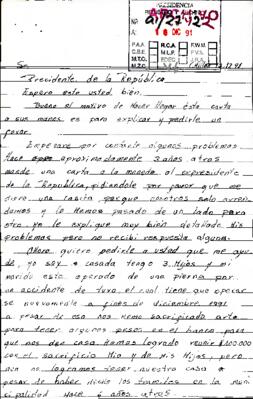 PRESIDENCIA
91/27
18 DIC 91
P.A.A. R.C.A. F.W.M.
C.B.E. M.L.P. P.V.S.
M.T.O. EDEC J.R.A.
M.Z.C.
Sr. 12.91
Presidente de la República
Espero este usted bien.
Bueno el motivo de Hacer llegar este carta
a sus manos es para explicar y pedirle un
favor.
Empezare por contarle algunos problemas
Hace aproximadamente 3 años atras
mande una carta a la moneda al expresidente
de la República pidiendole por favor que me
diera una casita porque nosotros solo arren
damos y lo Hemos pasado de un lado para
otro yo le explique muy bien detallado Mis
problemas pero no recibi respuesta alguna.
Ahora quiero pedirle a usted que me ayu
de, yo soy casada tengo 3 Hijos, mi
marido esta operado de una pierna por
un accidente que tuvo, el cual tiene que operar
se nuevamente a fines de diciembre 1991
a pesar de eso nos Hemos sacrificado arto
para tener algunos pesos en el banco para
que nos den casa Hemos logrado reunir $100.000
con el sacrificio Mio y de Mis Hijos, pero
aun no logramos tener nuestra casa a
pesar de haber hecho los tramites en la muni
cipalidad Hace 6 años atras.